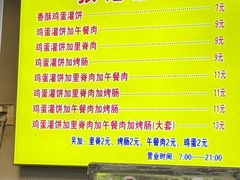 香酥鸡蛋灌饼 7元
鸡蛋灌饼加午餐肉 9元
鸡蛋灌饼加里脊肉 9元
鸡蛋灌饼加烤肠 9元
鸡蛋灌饼加里脊肉加午餐肉 11元
鸡蛋灌饼加里脊肉加烤肠 11元
鸡蛋灌饼加午餐肉加烤肠 11元
鸡蛋灌饼加里脊肉加午餐肉加烤肠(大套) 13元
另加：里脊2元、烤肠2元、午餐肉2元、鸡蛋2元
营业时间：7:00——21:00